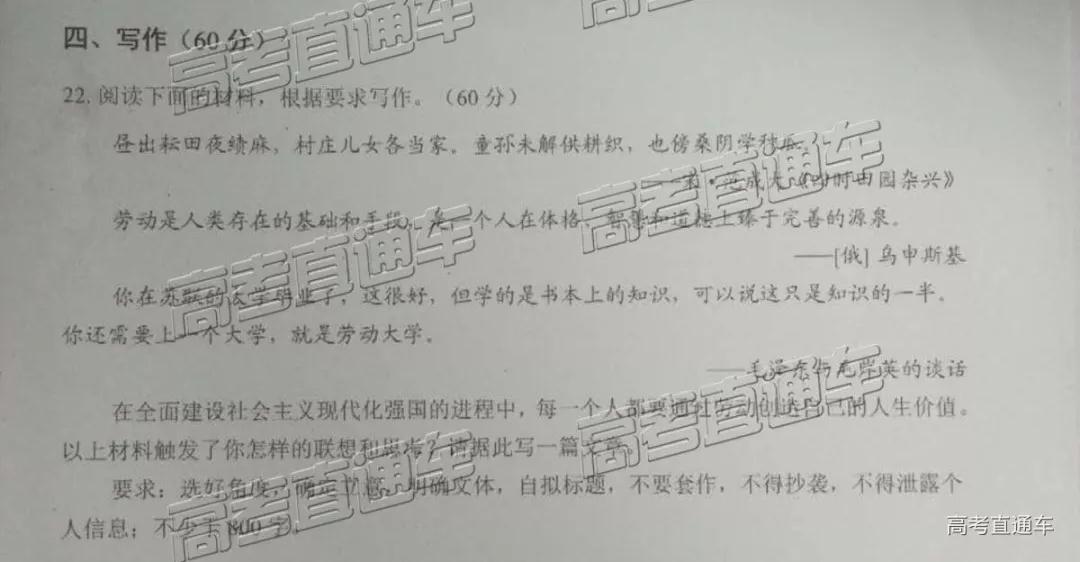 四、写作（60分）
22. 阅读下面的材料，根据要求写作。（60分）
昼出耘田夜绩麻，村庄儿女各当家。童孙未解供耕织，也傍桑阴学种瓜。
——宋·范成大《四时田园杂兴》
劳动是人类存在的基础和手段，是一个人在体格、智慧和道德上臻于完善的源泉。
——[俄] 乌申斯基
你在苏联的大学毕业了，这很好，但学的是书本上的知识，可以说这只是知识的一半。
你还需要上一个大学，就是劳动大学。
——毛泽东与毛岸英的谈话
在全面建设社会主义现代化强国的进程中，每一个人都要通过劳动创造自己的人生价值。
以上材料触发了你怎样的联想和思考？请据此写一篇文章。
要求：选好角度，确定立意，明确文体，自拟标题，不要套作，不得抄袭，不得泄露个
人信息；不少于800字。
高考直通车
高考直通车
高考直通车
高考直通车
高考直通车
高考直通车
高考直通车
高考直通车